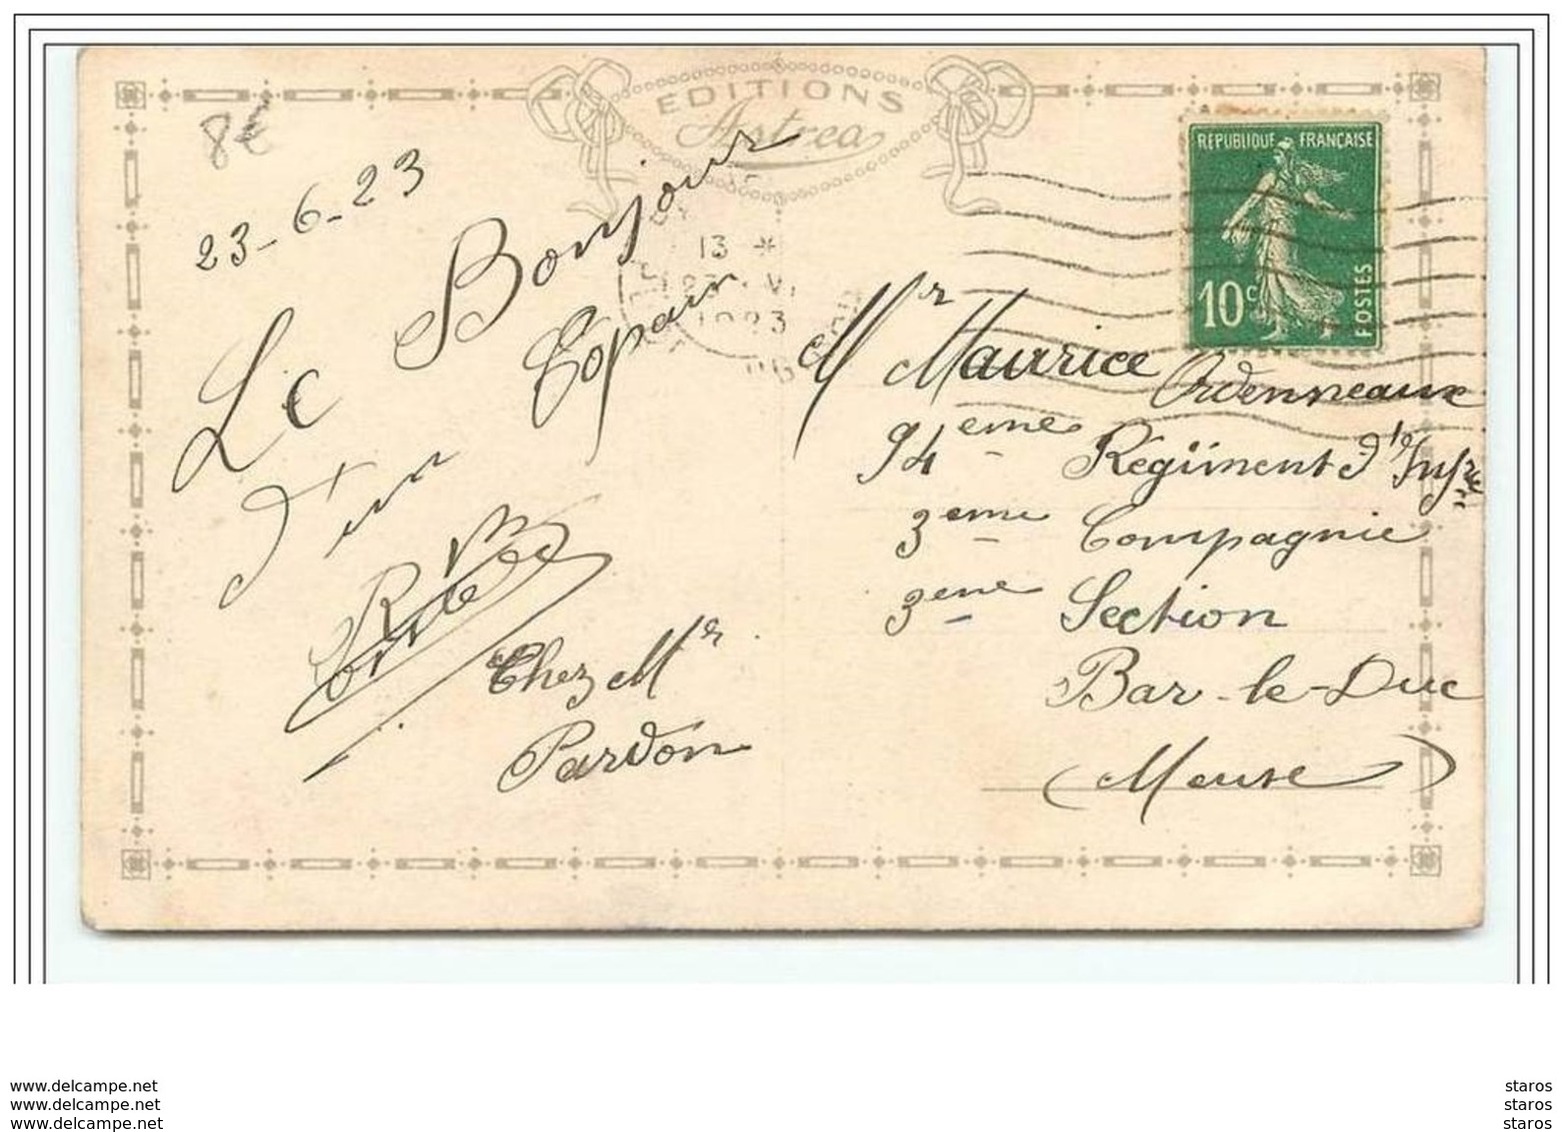 EDITIONS
Astrea
8€
23-6-23
Le Bonjour
d'un
Copain
Chez Mr
Pardon
13 *
1923
REPUBLIQUE FRANÇAISE
10c
POSTES
Mr Maurice Ordenneaux
94eme Régiment d'Infrie
3eme Compagnie
3eme Section
Bar-le-Duc
(Meuse)
www.delcampe.net
www.delcampe.net
www.delcampe.net
staros
staros
staros